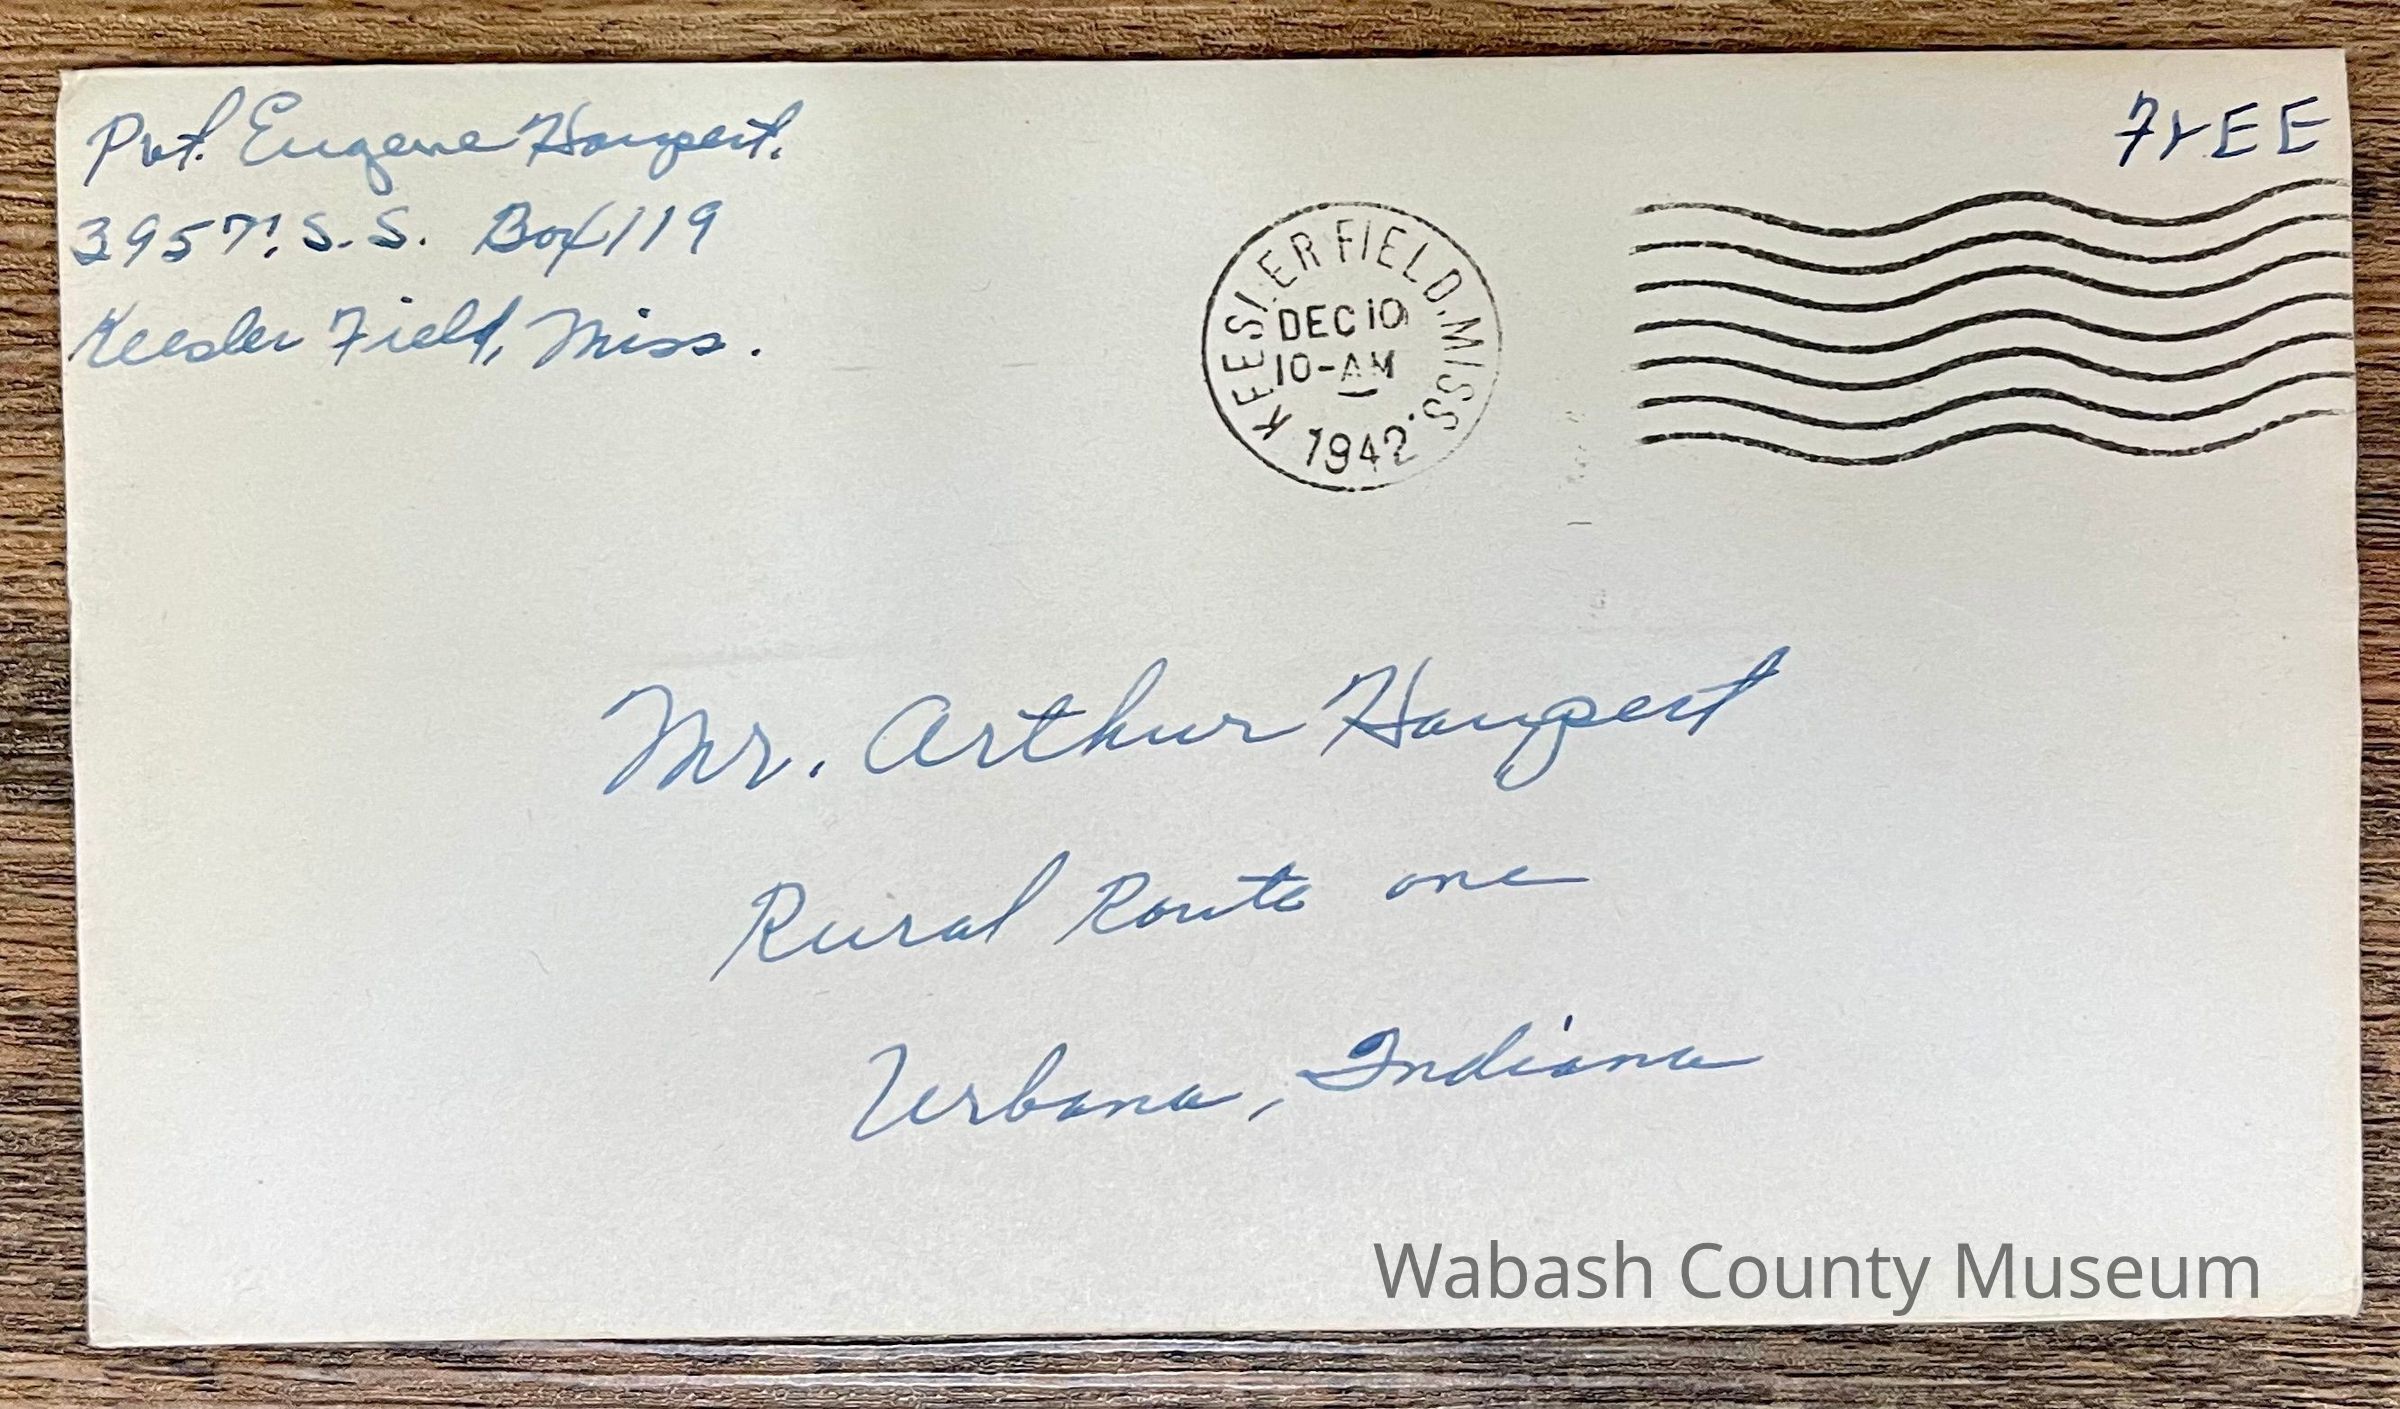 Pvt. Eugene Haupert.
395 T.S.S. Box 119
Keesler Field, Miss.
FrEE
KEESLER FIELD, MISS.
DEC 10
10-AM
1942
Mr. Arthur Haupert
Rural Route one
Urbana, Indiana
Wabash County Museum